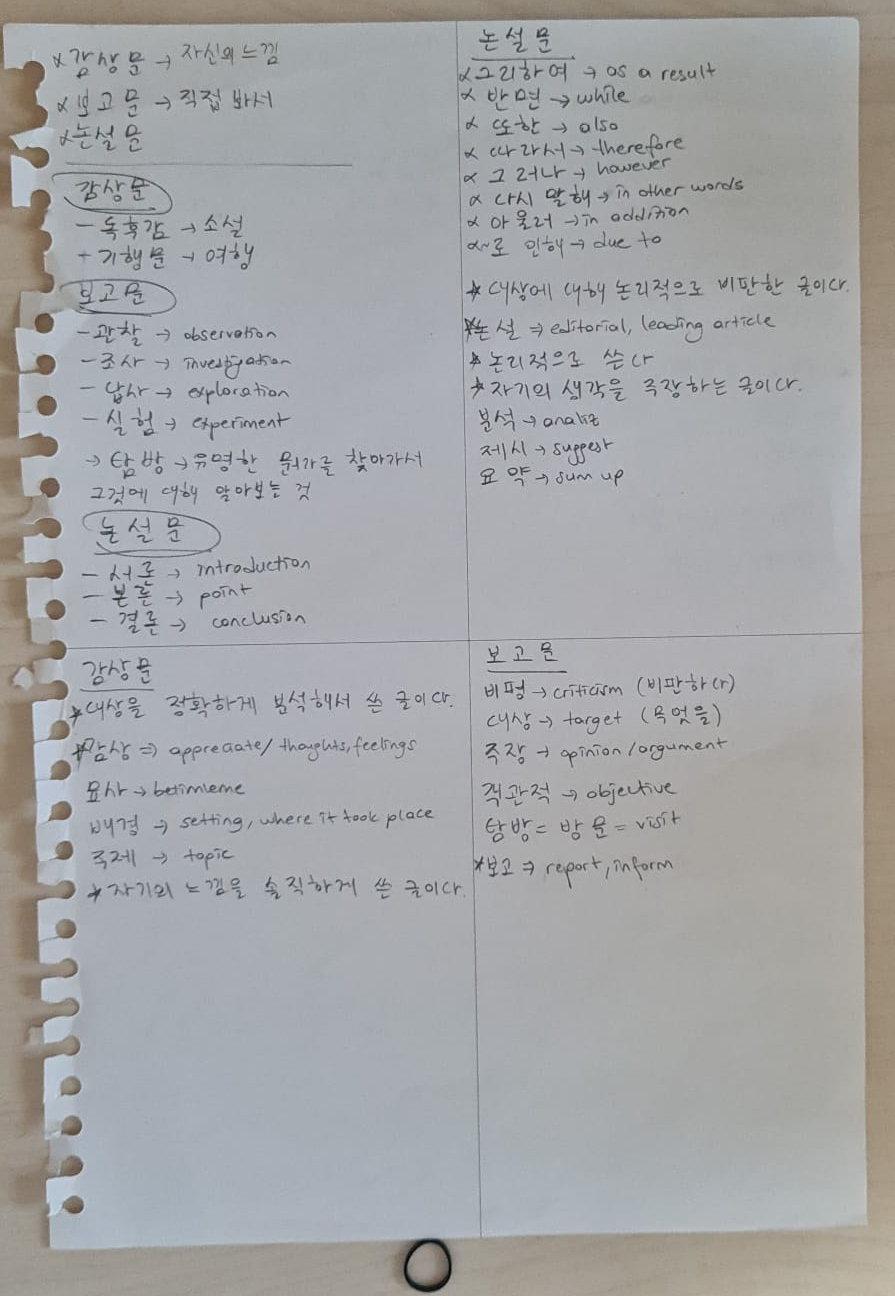 ∝감상문 → 자신의 느낌
∝보고문 → 직접 봐서
∝논설문
감상문
- 독후감 → 소설
+ 기행문 → 여행
보고문
- 관찰 → observation
- 조사 → investigation
- 답사 → exploration
- 실험 → experiment
→ 탐방 → 유명한 뭔가를 찾아가서
그것에 대해 알아보는 것
논설문
- 서론 → introduction
- 본론 → point
- 결론 → conclusion
논설문
∝그리하여 → as a result
∝ 반면 → while
∝ 또한 → also
∝ 따라서 → therefore
∝ 그러나 → however
∝ 다시 말해 → in other words
∝ 아울러 → in addition
∝~로 인해 → due to
* 대상에 대해 논리적으로 비판한 글이다.
*논설 ⇒ editorial, leading article
* 논리적으로 쓴다
* 자기의 생각을 주장하는 글이다.
분석 → analiz
제시 → suggest
요약 → sum up
감상문
*대상을 정확하게 분석해서 쓴 글이다.
*감상 ⇒ appreciate/ thoughts, feelings
묘사 → betimleme
배경 → setting, where it took place
주제 → topic
* 자기의 느낌을 솔직하게 쓴 글이다.
보고문
비평 → criticism (비판하다)
대상 → target (무엇을)
주장 → opinion / argument
객관적 → objective
탐방 = 방문 = visit
*보고 ⇒ report, inform